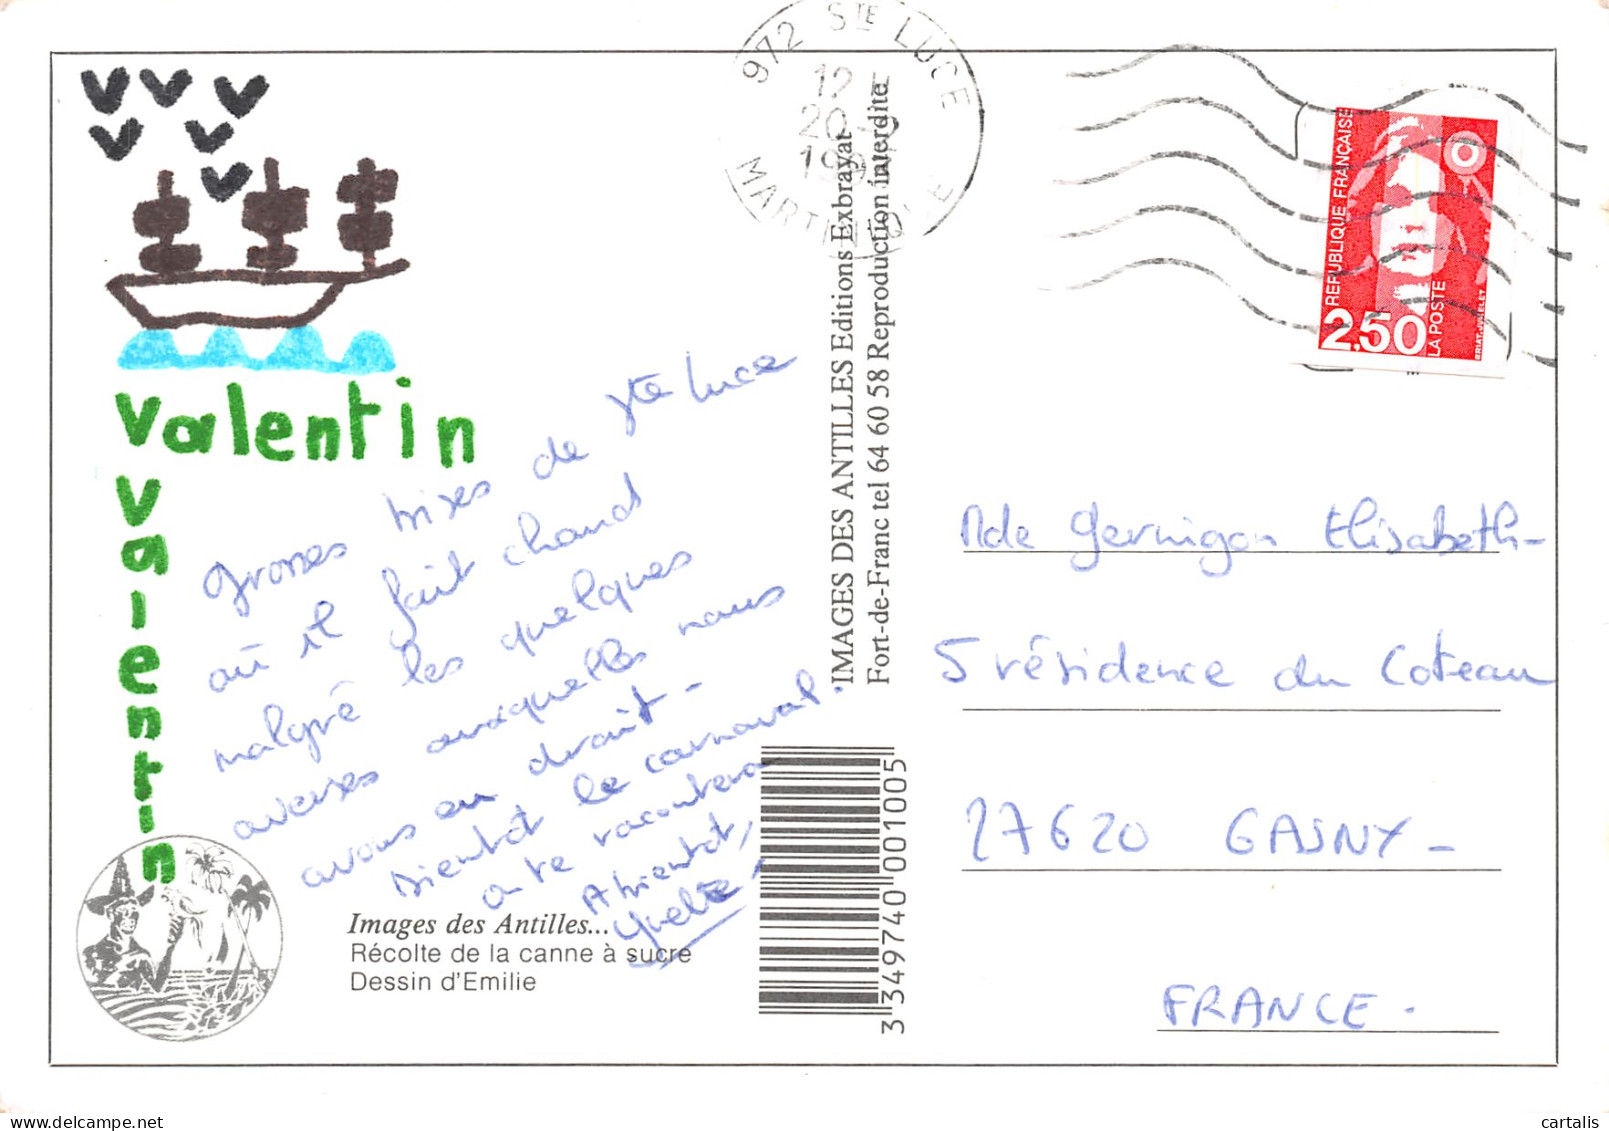 valentin
valentin
Grosses bises de Ste Luce
où il fait chaud
malgré les quelques
averses auxquelles nous
avons eu droit -
Bientôt le carnaval.
on te racontera
A bientôt,
Yvette
Images des Antilles...
Récolte de la canne à sucre
Dessin d'Emilie
IMAGES DES ANTILLES Editions Exbrayat
Fort-de-Franc tel 64 60 58 Reproduction interdite
3 349740 001005
972 STE LUCE
12
20
MARTINIQUE
REPUBLIQUE FRANÇAISE
2,50
LA POSTE
Mde Gernigon Elisabeth -
5 résidence du Coteau
27620 GASNY -
FRANCE .
cartalis